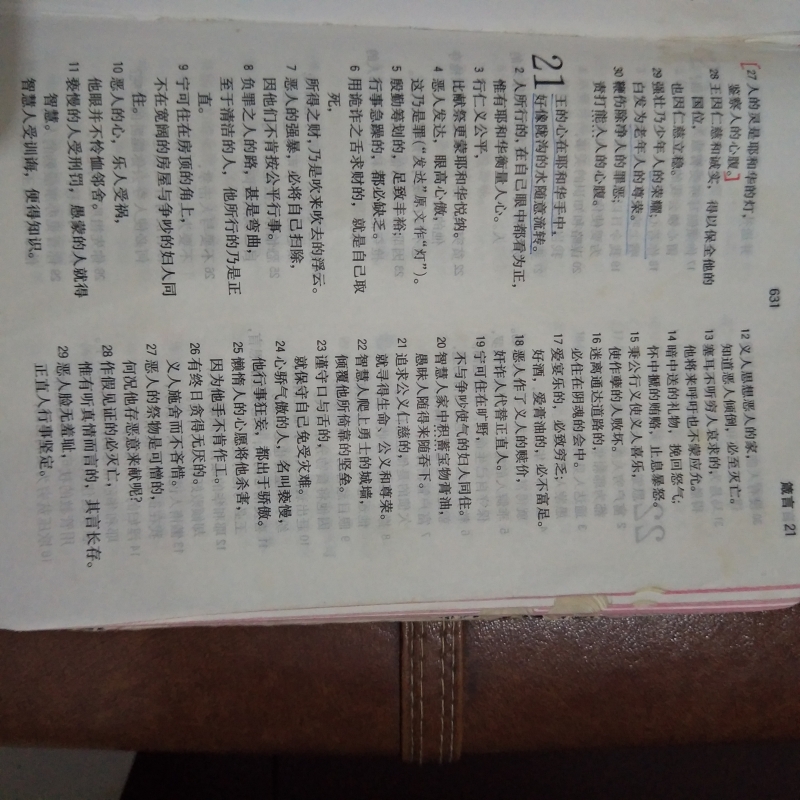 631
箴言 21
27 人的灵是耶和华的灯，
鉴察人的心腹。
28 王因仁慈和诚实，得以保全他的
国位，
也因仁慈立稳。
29 强壮乃少年人的荣耀；
白发为老年人的尊荣。
30 鞭伤除净人的罪恶；
责打能入人的心腹。
21 王的心在耶和华手中，
好像陇沟的水随意流转。
2 人所行的，在自己眼中都看为正，
惟有耶和华衡量人心。
3 行仁义公平，
比献祭更蒙耶和华悦纳。
4 恶人发达，眼高心傲，
这乃是罪（“发达”原文作“灯”）。
5 殷勤筹划的，足致丰裕；
行事急躁的，都必缺乏。
6 用诡诈之舌求财的，就是自己取
死，
所得之财，乃是吹来吹去的浮云。
7 恶人的强暴，必将自己扫除，
因他们不肯按公平行事。
8 负罪之人的路，甚是弯曲，
至于清洁的人，他所行的乃是正
直。
9 宁可住在房顶的角上，
不在宽阔的房屋与争吵的妇人同
住。
10 恶人的心，乐人受祸，
他眼并不怜恤邻舍。
11 亵慢的人受刑罚，愚蒙的人就得
智慧。
智慧人受训诲，便得知识。
12 义人思想恶人的家，
知道恶人倾倒，必至灭亡。
13 塞耳不听穷人哀求的，
他将来呼吁也不蒙应允。
14 暗中送的礼物，挽回怒气；
怀中搋的贿赂，止息暴怒。
15 秉公行义使义人喜乐，
使作孽的人败坏。
16 迷离通达道路的，
必住在阴魂的会中。
17 爱宴乐的，必致穷乏；
好酒，爱膏油的，必不富足。
18 恶人作了义人的赎价，
奸诈人代替正直人。
19 宁可住在旷野，
不与争吵使气的妇人同住。
20 智慧人家中积蓄宝物膏油，
愚昧人随得来随吞下。
21 追求公义仁慈的，
就寻得生命、公义和尊荣。
22 智慧人爬上勇士的城墙，
倾覆他所倚靠的坚垒。
23 谨守口与舌的，
就保守自己免受灾难。
24 心骄气傲的人，名叫亵慢，
他行事狂妄，都出于骄傲。
25 懒惰人的心愿将他杀害，
因为他手不肯作工。
26 有终日贪得无厌的。
义人施舍而不吝惜。
27 恶人的祭物是可憎的，
何况他存恶意来献呢？
28 作假见证的必灭亡，
惟有听真情而言的，其言长存。
29 恶人脸无羞耻，
正直人行事坚定。